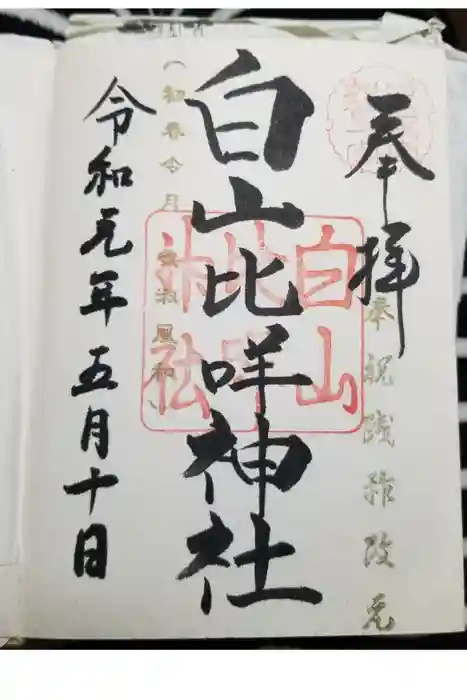 奉拝
奉祝践祚改元
白山比咩神社
白山
比咩
神社
(初春令月 気淑風和)
令和元年五月十日